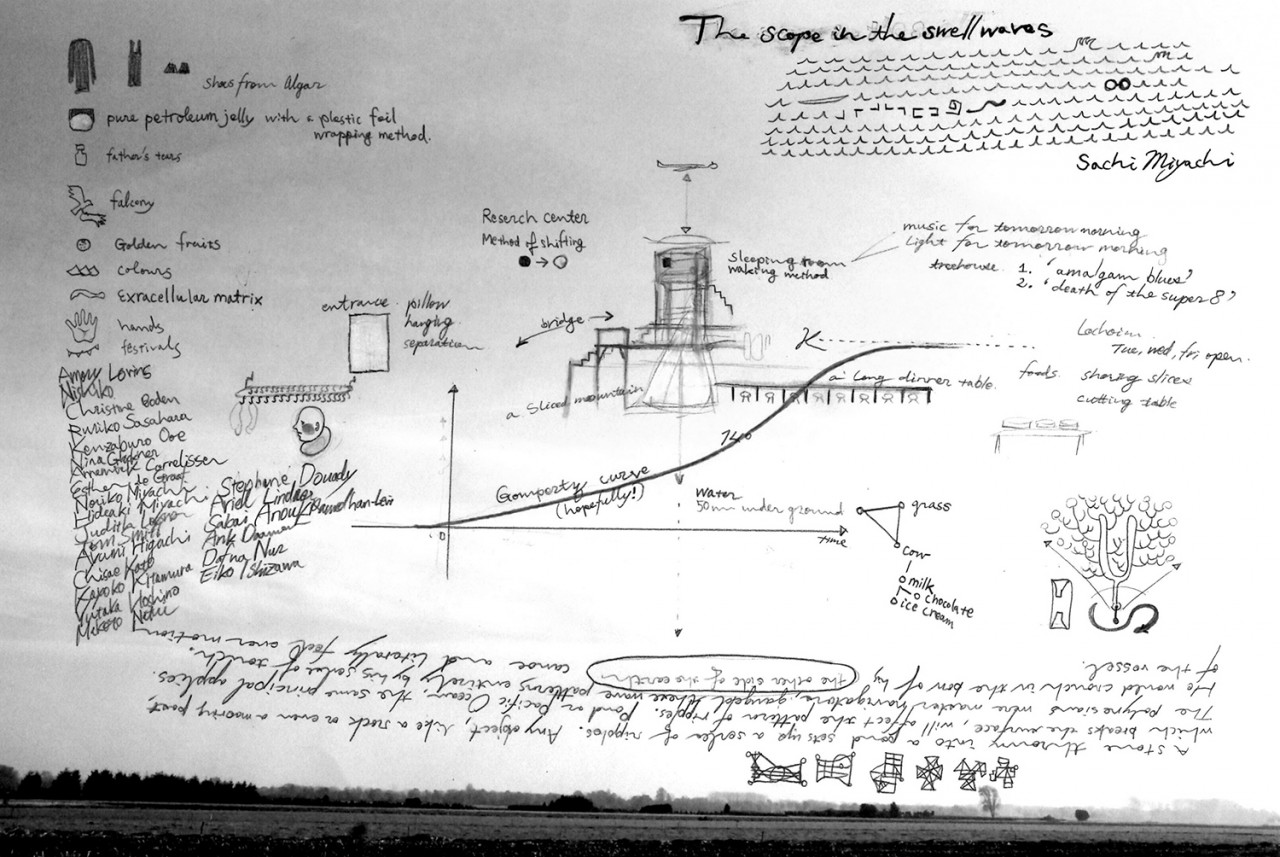 The scope in the swell waves
Sachi Miyachi
shoes from Algar
pure petroleum jelly with a plastic foil
wrapping method.
father's tears
falcony
Golden fruits
colours
Exracellular matrix
hands
festivals
Amory Lovins
Nishiko
Christine Boden
Ruriko Sasahara
Kenzaburo Ooe
Nina Glockner
Annemiek Cornelissen
Esther de Graaf
Noriko Miyachi
Hideaki Miyachi
Juditka
Tomi Smitt
Ayumi Higachi
Chisae Kato
Kayoko Kitamura
Yutaka Hoshino
Makoto
Stephane Douady
Ariel Lindner
Sakai
Anouk
Arik
Dafna Nur
Eiko Ishizawa
Reserch center
Method of shifting
entrance
pillow
hanging
separation
bridge
sleeping room
waking method
music for tomorrow morning
Light for tomorrow morning
treehouse 1. 'amalgam blues'
2. 'death of the super 8'
K
Tue, wed, fri open.
foods sharing slices
cutting table
a long dinner table
a sliced mountain
Gomperty curve
(hopefully!)
Water
50m under ground
time
0
grass
cow
milk
chocolate
ice cream
A stone thrown into a pond sets up a series of ripples. Any object, like a rock or even a mooring post
which breaks the surface, will affect the pattern of ripples. Pond or Pacific Ocean, the same principal applies.
The Polynesians were master navigators, gauged these wave patterns entirely by his sense of touch.
He would crouch in the bow of his canoe and literally feel over motion
of the vessel.
the other side of the earth